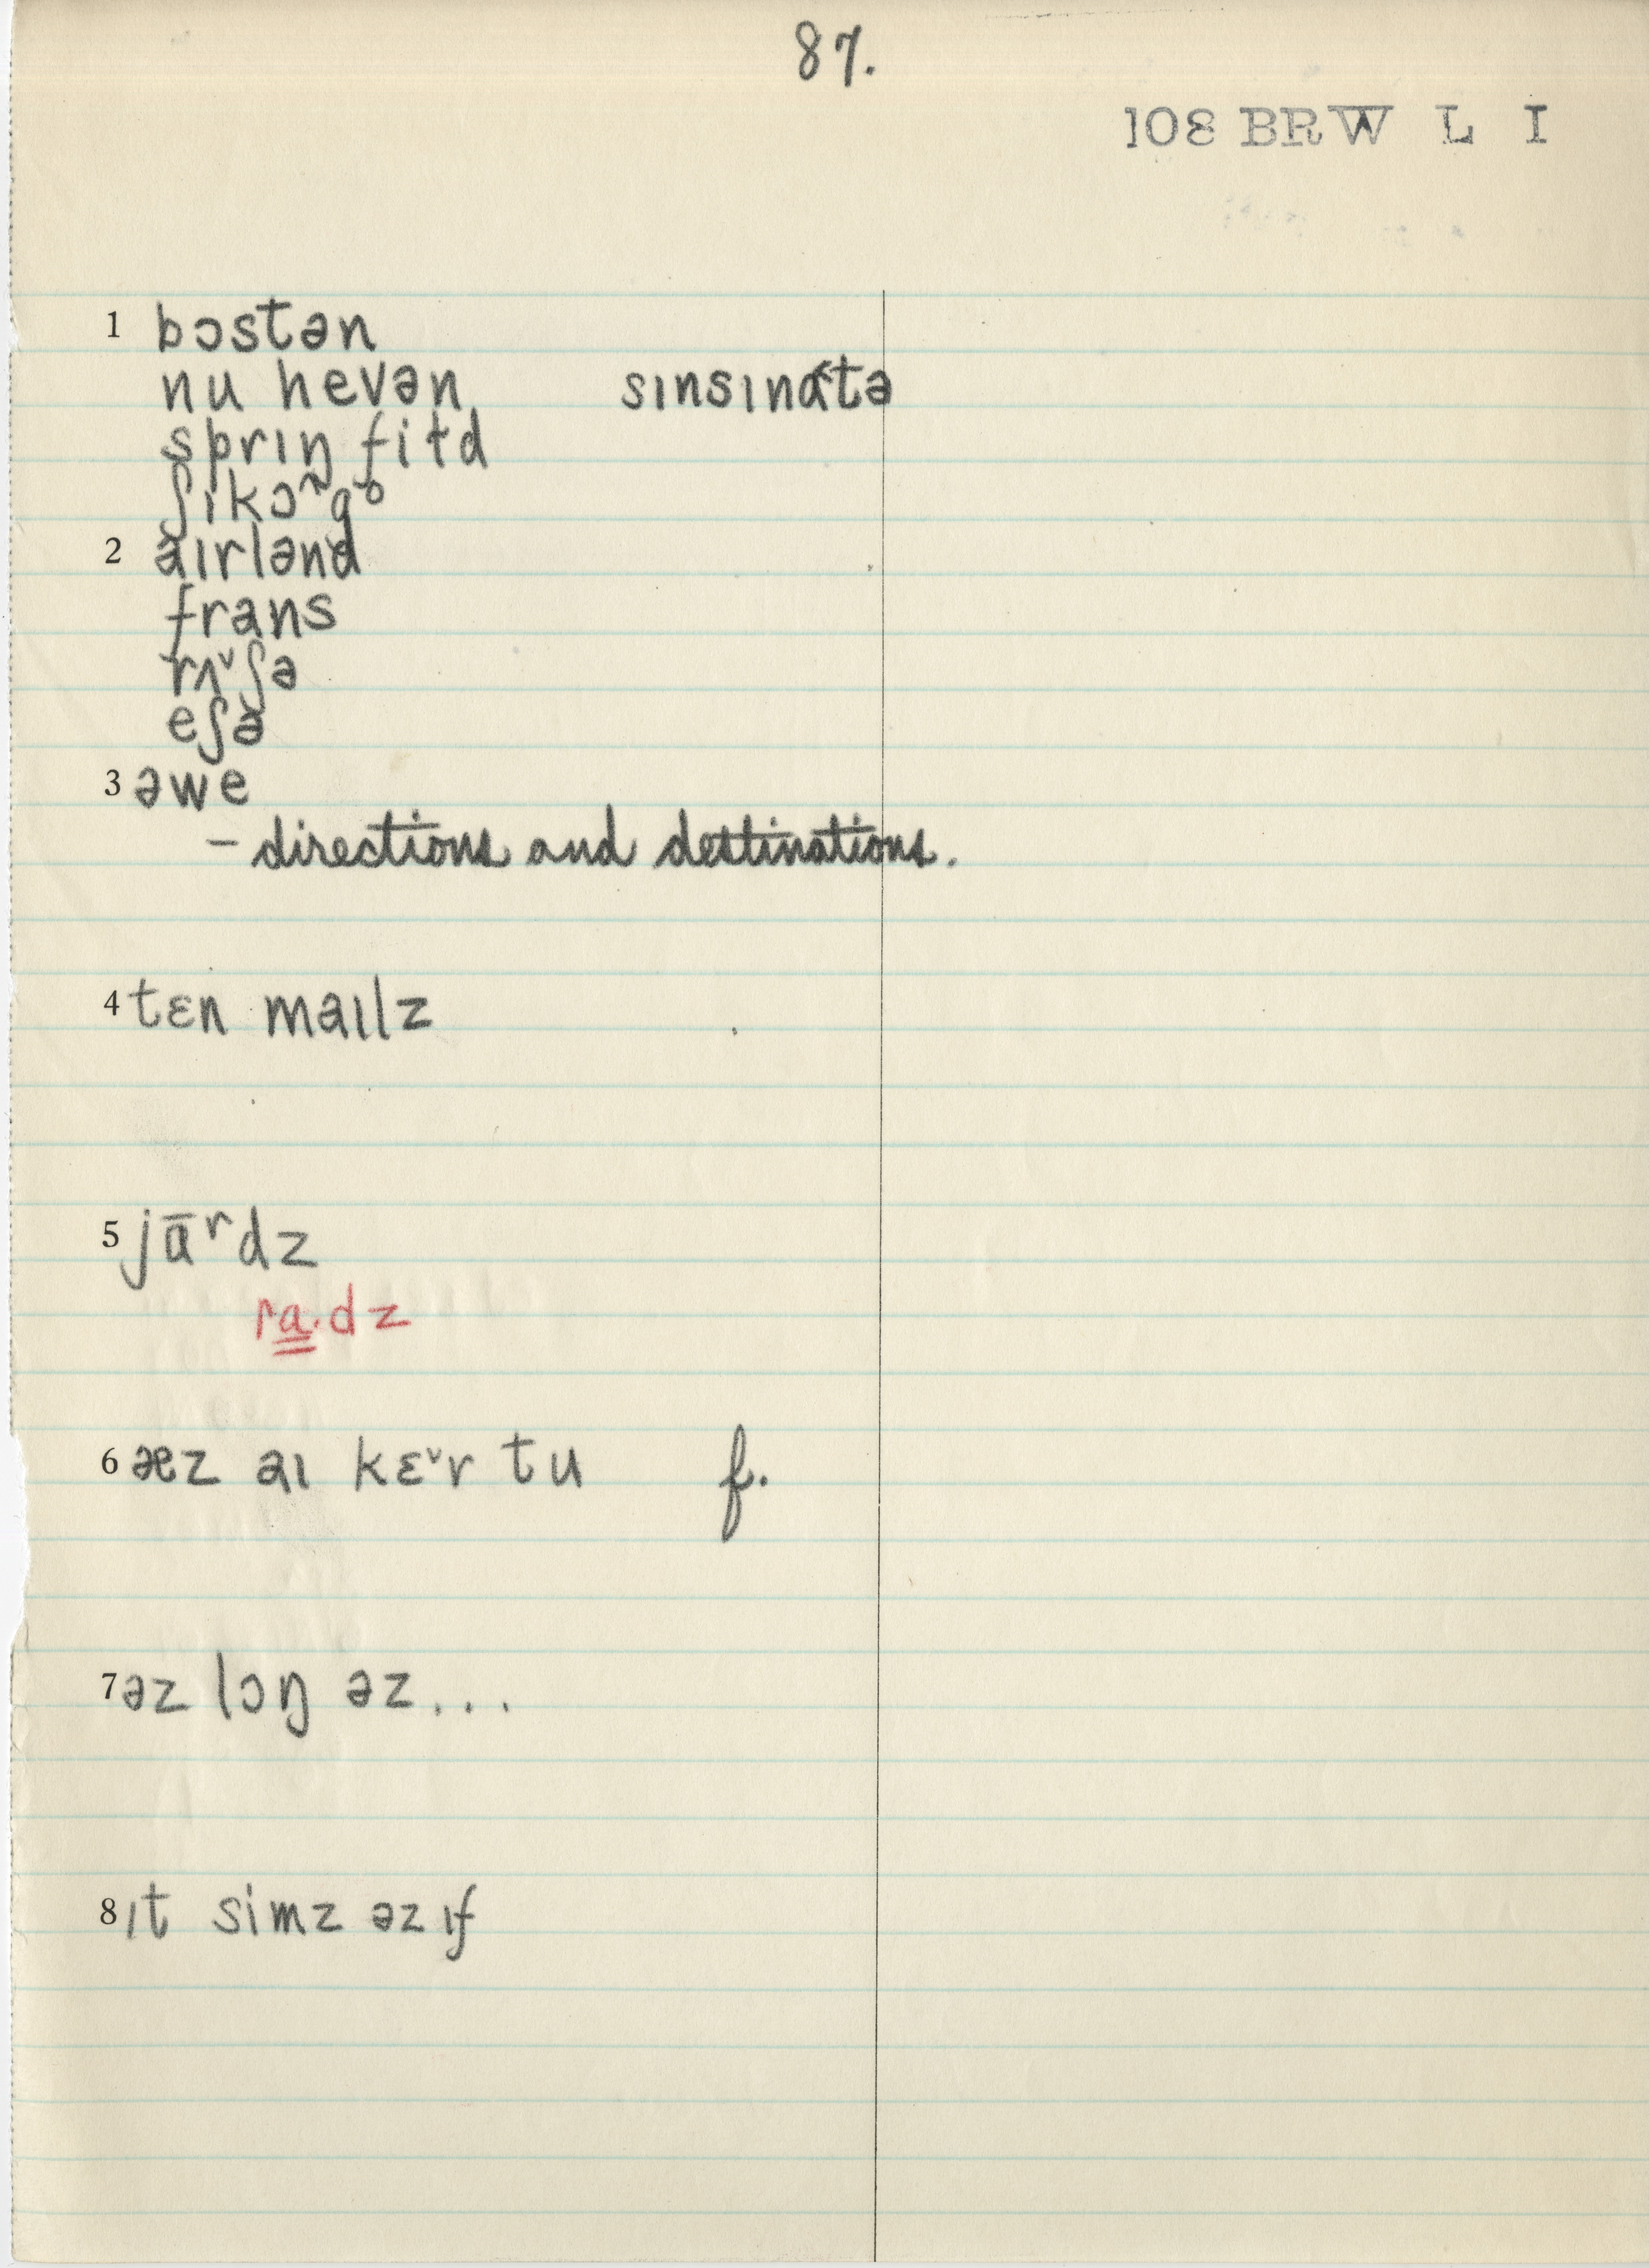 87.
108 BRW L I
1 bɔstən
nu hevən sɪnsɪnɑ˂tə
sprɪŋ fiɫd
ʃɪkɔ˄go
2 aɪrlənd
frans
rʌ˅ʃə
eʃə
3 əwe
– directions and destinations.
4 tɛn maɪlz
5 jɑ̄ʳdz
ra̳·dz
6 æz aɪ kɛ˅r tu f.
7 əz lɔŋ əz...
8 ɪt simz əz ɪf